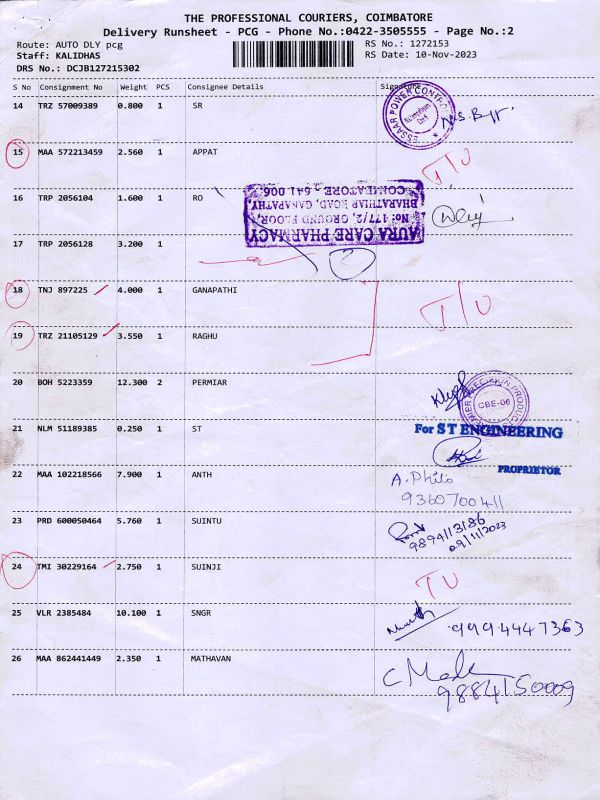 THE PROFESSIONAL COURIERS, COIMBATORE
Delivery Runsheet - PCG - Phone No.:0422-3505555 - Page No.:2
Route: AUTO DLY pcg RS No.: 1272153
Staff: KALIDHAS RS Date: 10-Nov-2023
DRS No.: DCJB127215302
S No Consignment No Weight PCS Consignee Details Signature
14 TRZ 57009389 0.800 1 SR
ESSAAR POWER CONTROL
15 MAA 572213459 2.560 1 APPAT T/U
16 TRP 2056104 1.600 1 RO
AURA CARE PHARMACY
NO: 177/2, GROUND FLOOR,
BHARATHIAR ROAD, GANAPATHY,
COIMBATORE - 641 006.
17 TRP 2056128 3.200 1
18 TNJ 897225 4.000 1 GANAPATHI T/U
19 TRZ 21105129 3.550 1 RAGHU
20 BOH 5223359 12.300 2 PERMIAR
PRECISION PRODUCTS
CBE-06
21 NLM 51189385 0.250 1 ST For S T ENGINEERING
PROPRIETOR
22 MAA 102218566 7.900 1 ANTH A. Philo
9360700411
23 PRD 600050464 5.760 1 SUINTU
9894113186
09/11/2023
24 TMI 30229164 2.750 1 SUINJI TU
25 VLR 2385484 10.100 1 SNGR 9994447363
26 MAA 862441449 2.350 1 MATHAVAN
9884150009